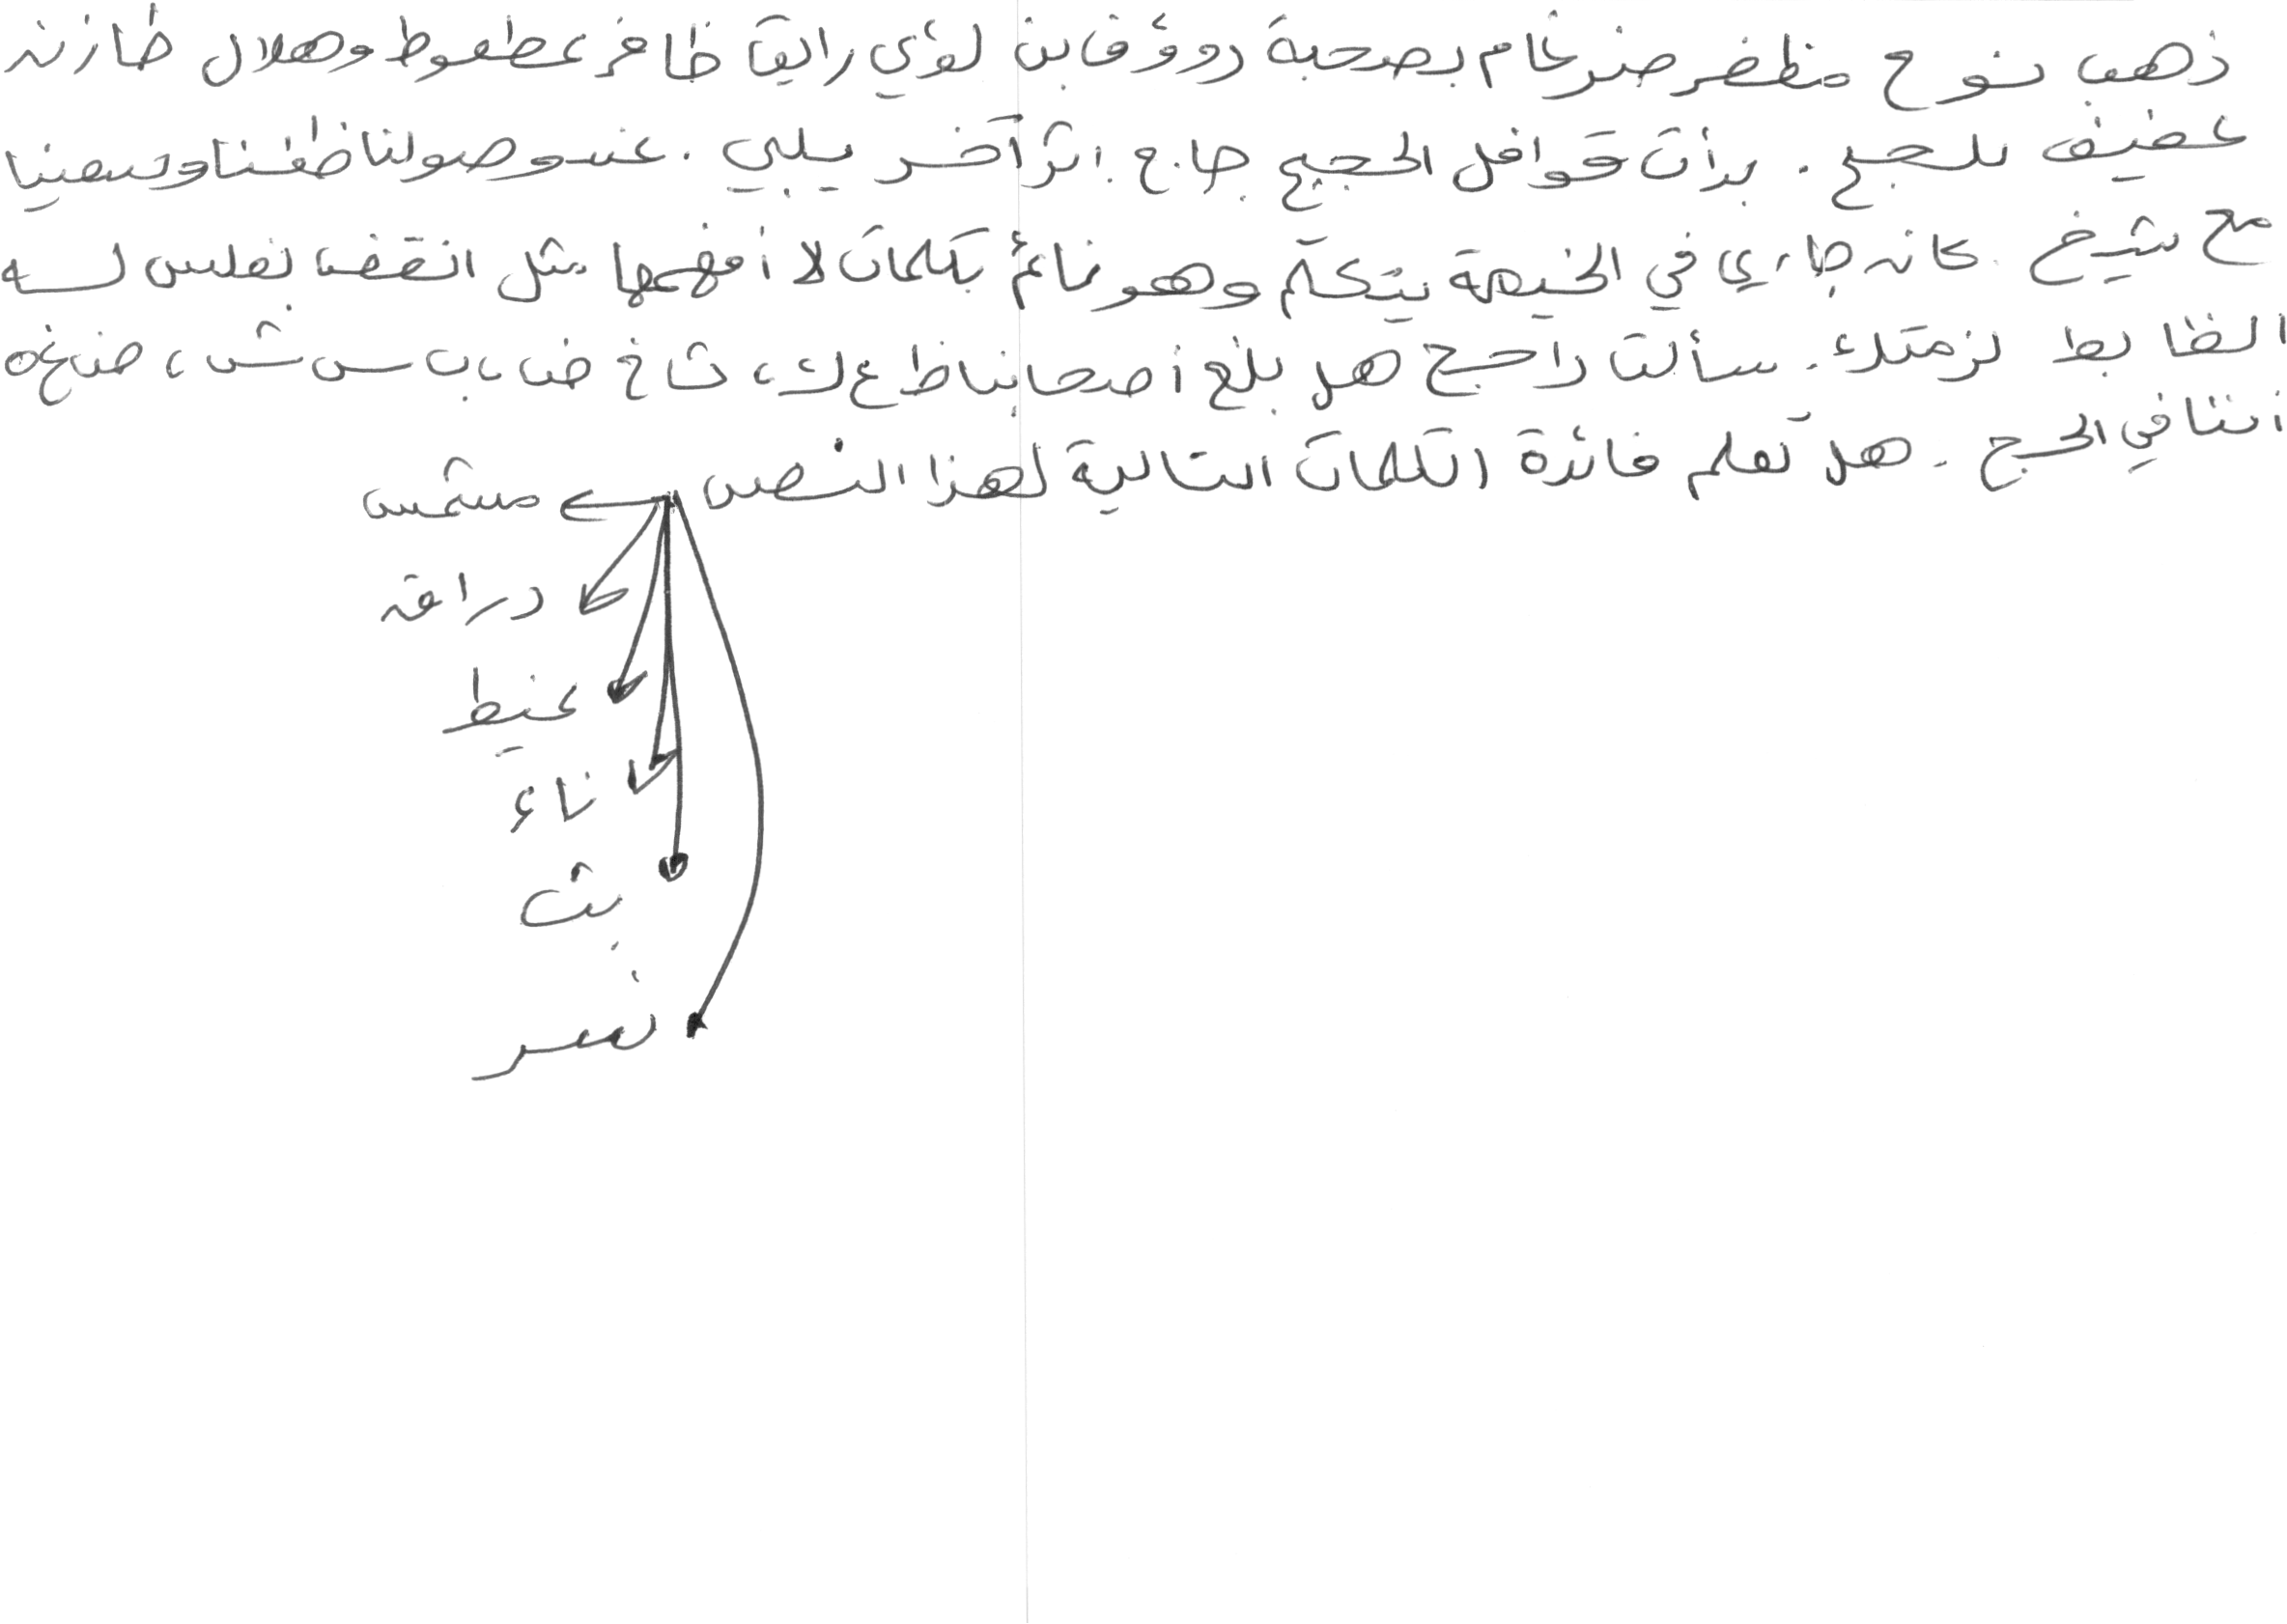 ذهب نوح مظفر ضرغام بصحبة رؤوف بن لؤي رايق ظافر عطعوط وهلال طازن
غضيف للحج . بدأت قوافل الحجيج جا.ج. اثر آخر يلبي . عند وصولنا طفنا وتسعينا
مع شيخ . كان جاري في الخيمة يتكلم وهو نائم بكلمات لا أفهمها مثل انقضت نفلس له
الظابط لزمتك . سألت داحج هل بلغ أصحابنا ظ ع ك ، ث خ ض ، ب س ش ، ض غ ه
أننا في الحج . هل تعلم فائدة الكلمات التالية لهذا النص مشمس
دراق
غيط
ناء
بث
نسر